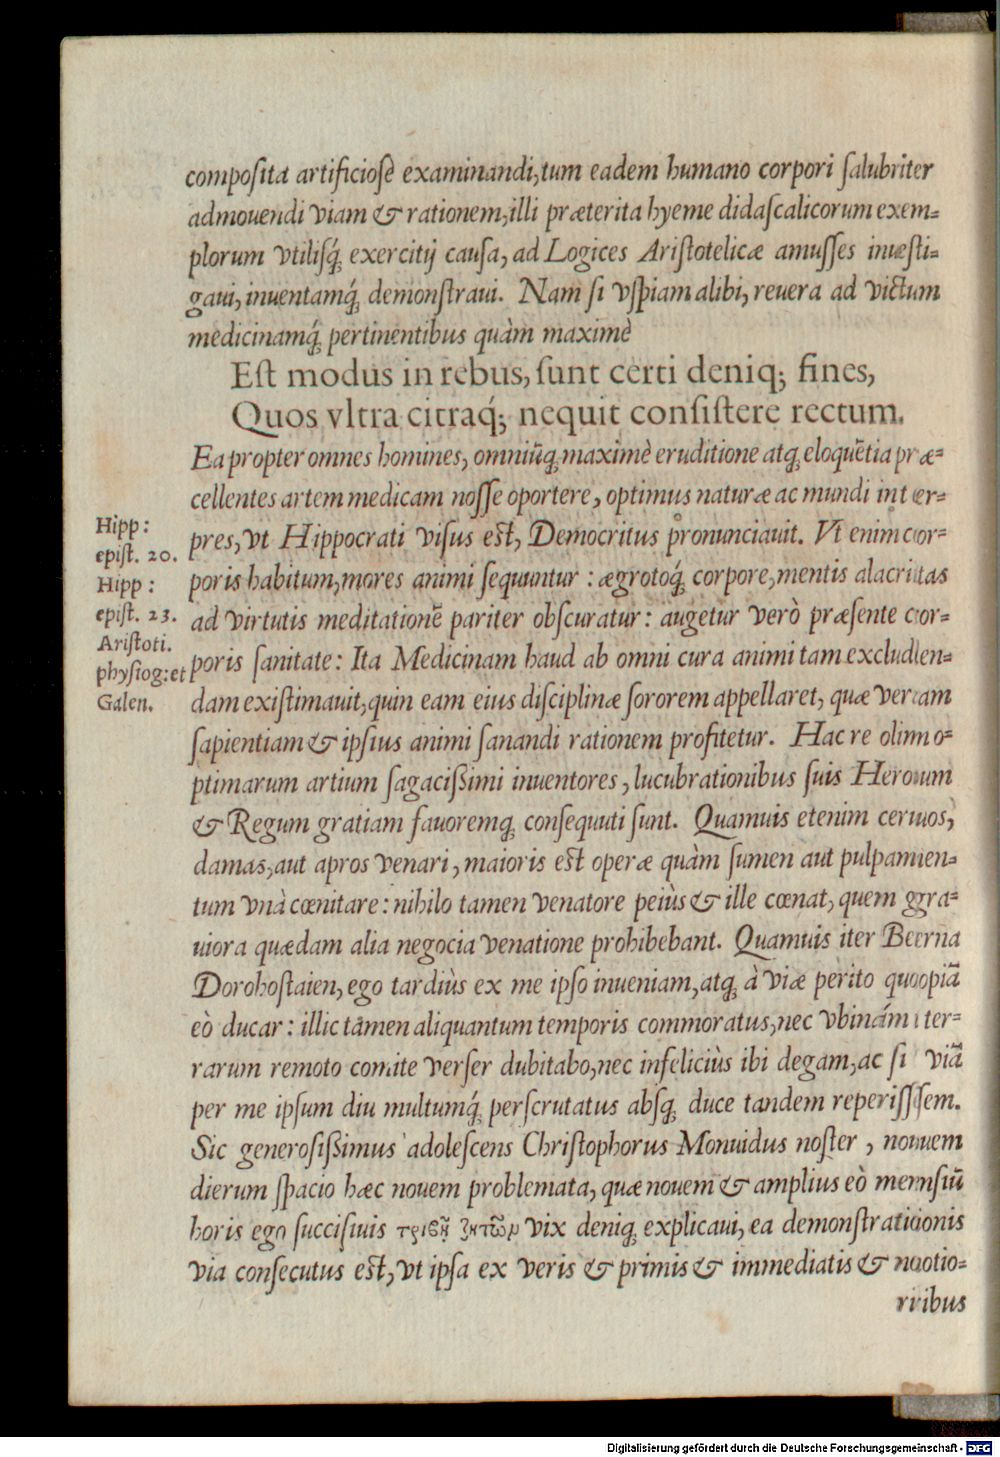 compoſita artificioſè examinandi, tum eadem humano corpori ſalubriter
admouendi viam & rationem, illi præterita hyeme didaſcalicorum exem-
plorum vtilisq́; exercitij cauſa, ad Logices Ariſtotelicæ amuſſes inueſti-
gaui, inuentamq́; demonſtraui. Nam ſi vſpiam alibi, reuera ad victum
medicinamq́; pertinentibus quàm maximè
Eſt modus in rebus, ſunt certi deniq; fines,
Quos vltra citraq́; nequit conſiſtere rectum.
Ea propter omnes homines, omniũq; maximè eruditione atq; eloquẽtia præ-
cellentes artem medicam noſſe oportere, optimus naturæ ac mundi inter-
pres, vt Hippocrati viſus eſt, Democritus pronunciauit. Vt enim cor-
poris habitum, mores animi ſequuntur: ægrotoq́; corpore, mentis alacritas
ad virtutis meditationẽ pariter obſcuratur: augetur verò præſente cor-
poris ſanitate: Ita Medicinam haud ab omni cura animi tam excluden-
dam exiſtimauit, quin eam eius diſciplinæ ſororem appellaret, quæ veram
ſapientiam & ipſius animi ſanandi rationem profitetur. Hac re olim o-
ptimarum artium ſagacißimi inuentores, lucubrationibus ſuis Heroum
& Regum gratiam fauoremq; conſequuti ſunt. Quamuis etenim ceruos,
damas, aut apros venari, maioris eſt operæ quàm ſumen aut pulpamen-
tum vnà cœnitare: nihilo tamen venatore peiùs & ille cœnat, quem gra-
uiora quædam alia negocia venatione prohibebant. Quamuis iter Berna
Dorohoſtaien, ego tardiùs ex me ipſo inueniam, atq; à viæ perito quopiã
eò ducar: illic tamen aliquantum temporis commoratus, nec vbinám ter-
rarum remoto comite verſer dubitabo, nec infeliciùs ibi degam, ac ſi viã
per me ipſum diu multumq́; perſcrutatus absq; duce tandem reperiſſem.
Sic generoſißimus adoleſcens Chriſtophorus Monuidus noſter, nouem
dierum ſpacio hæc nouem problemata, quæ nouem & amplius eò menſiũ
horis ego ſucciſiuis vix deniq; explicaui, ea demonſtrationis
via conſecutus eſt, vt ipſa ex veris & primis & immediatis & notio-
ribus
Hipp:
epiſt. 20.
Hipp:
epiſt. 23.
Ariſtoti.
phyſiog: et
Galen.
Digitalisierung gefördert durch die Deutsche Forschungsgemeinschaft - DFG